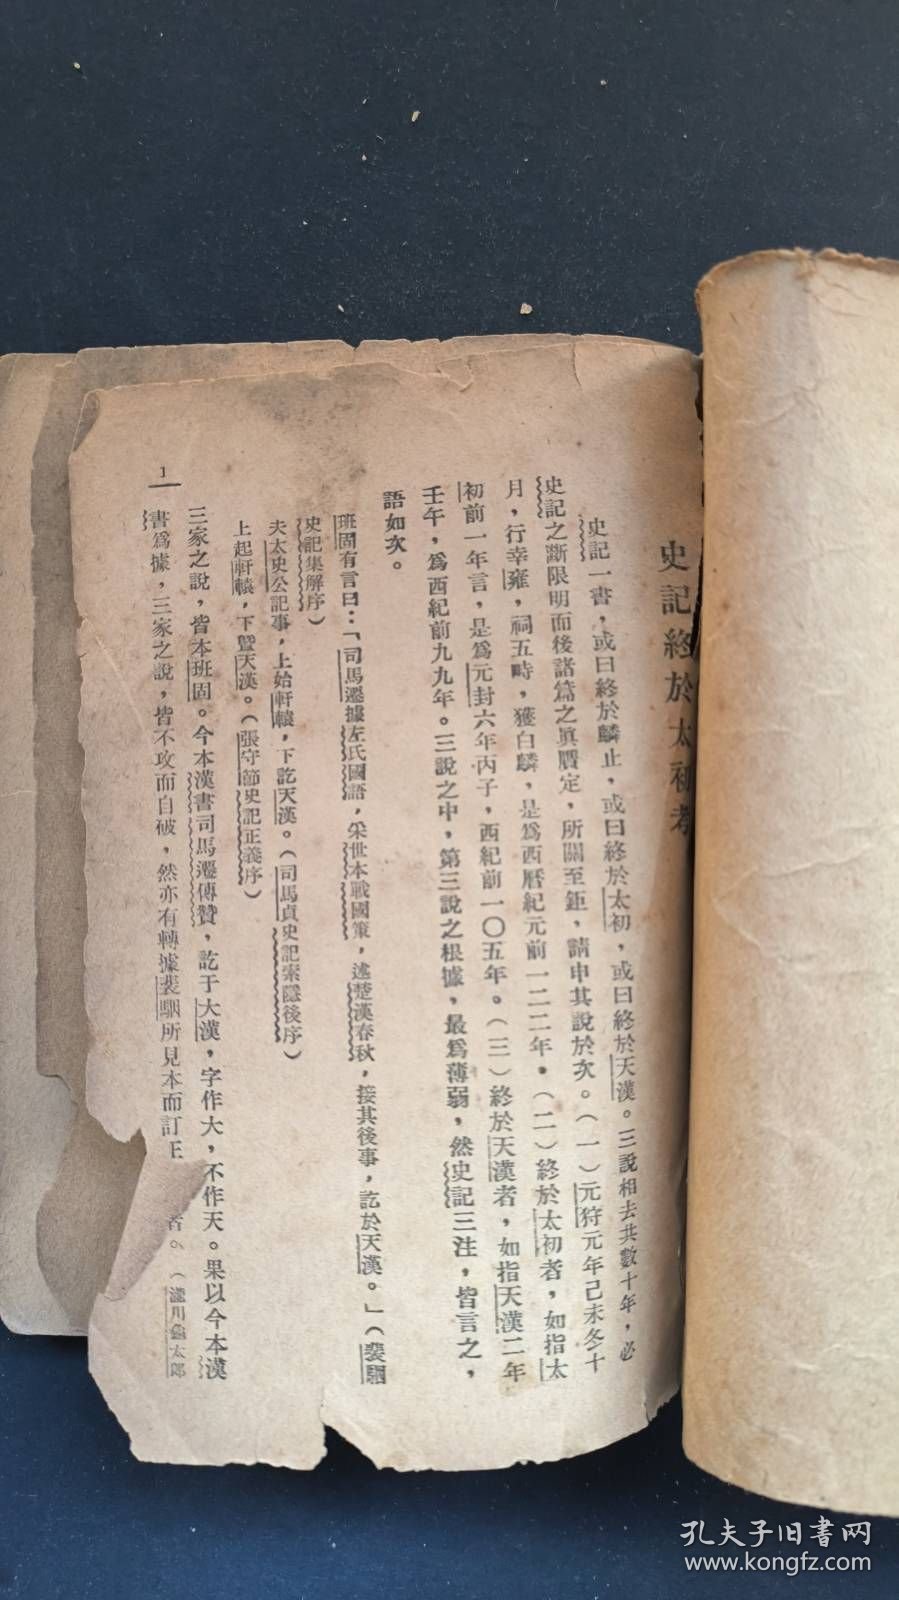 史記終於太初考
史記一書，或曰終於麟止，或曰終於太初，或曰終於天漢。三說相去共數十年，必
史記之斷限明而後諸篇之眞贋定，所關至鉅，請申其說於次。（一）元狩元年己未冬十
月，行幸雍，祠五畤，獲白麟，是爲西曆紀元前一二二年。（二）終於太初者，如指太
初前一年言，是爲元封六年丙子，西紀前一〇五年。（三）終於天漢者，如指天漢二年
壬午，爲西紀前九九年。三說之中，第三說之根據，最爲薄弱，然史記三注，皆言之，
語如次。
班固有言曰：「司馬遷據左氏國語，采世本戰國策，述楚漢春秋，接其後事，訖於天漢。」（裴駰
史記集解序）
夫太史公記事，上始軒轅，下訖天漢。（司馬貞史記索隱後序）
上起軒轅，下曁天漢。（張守節史記正義序）
三家之說，皆本班固。今本漢書司馬遷傳贊，訖于大漢，字作大，不作天。果以今本漢
書爲據，三家之說，皆不攻而自破，然亦有轉據裴駰所見本而訂正者。（瀧川龜太郎
1
孔夫子旧書网
www.kongfz.com